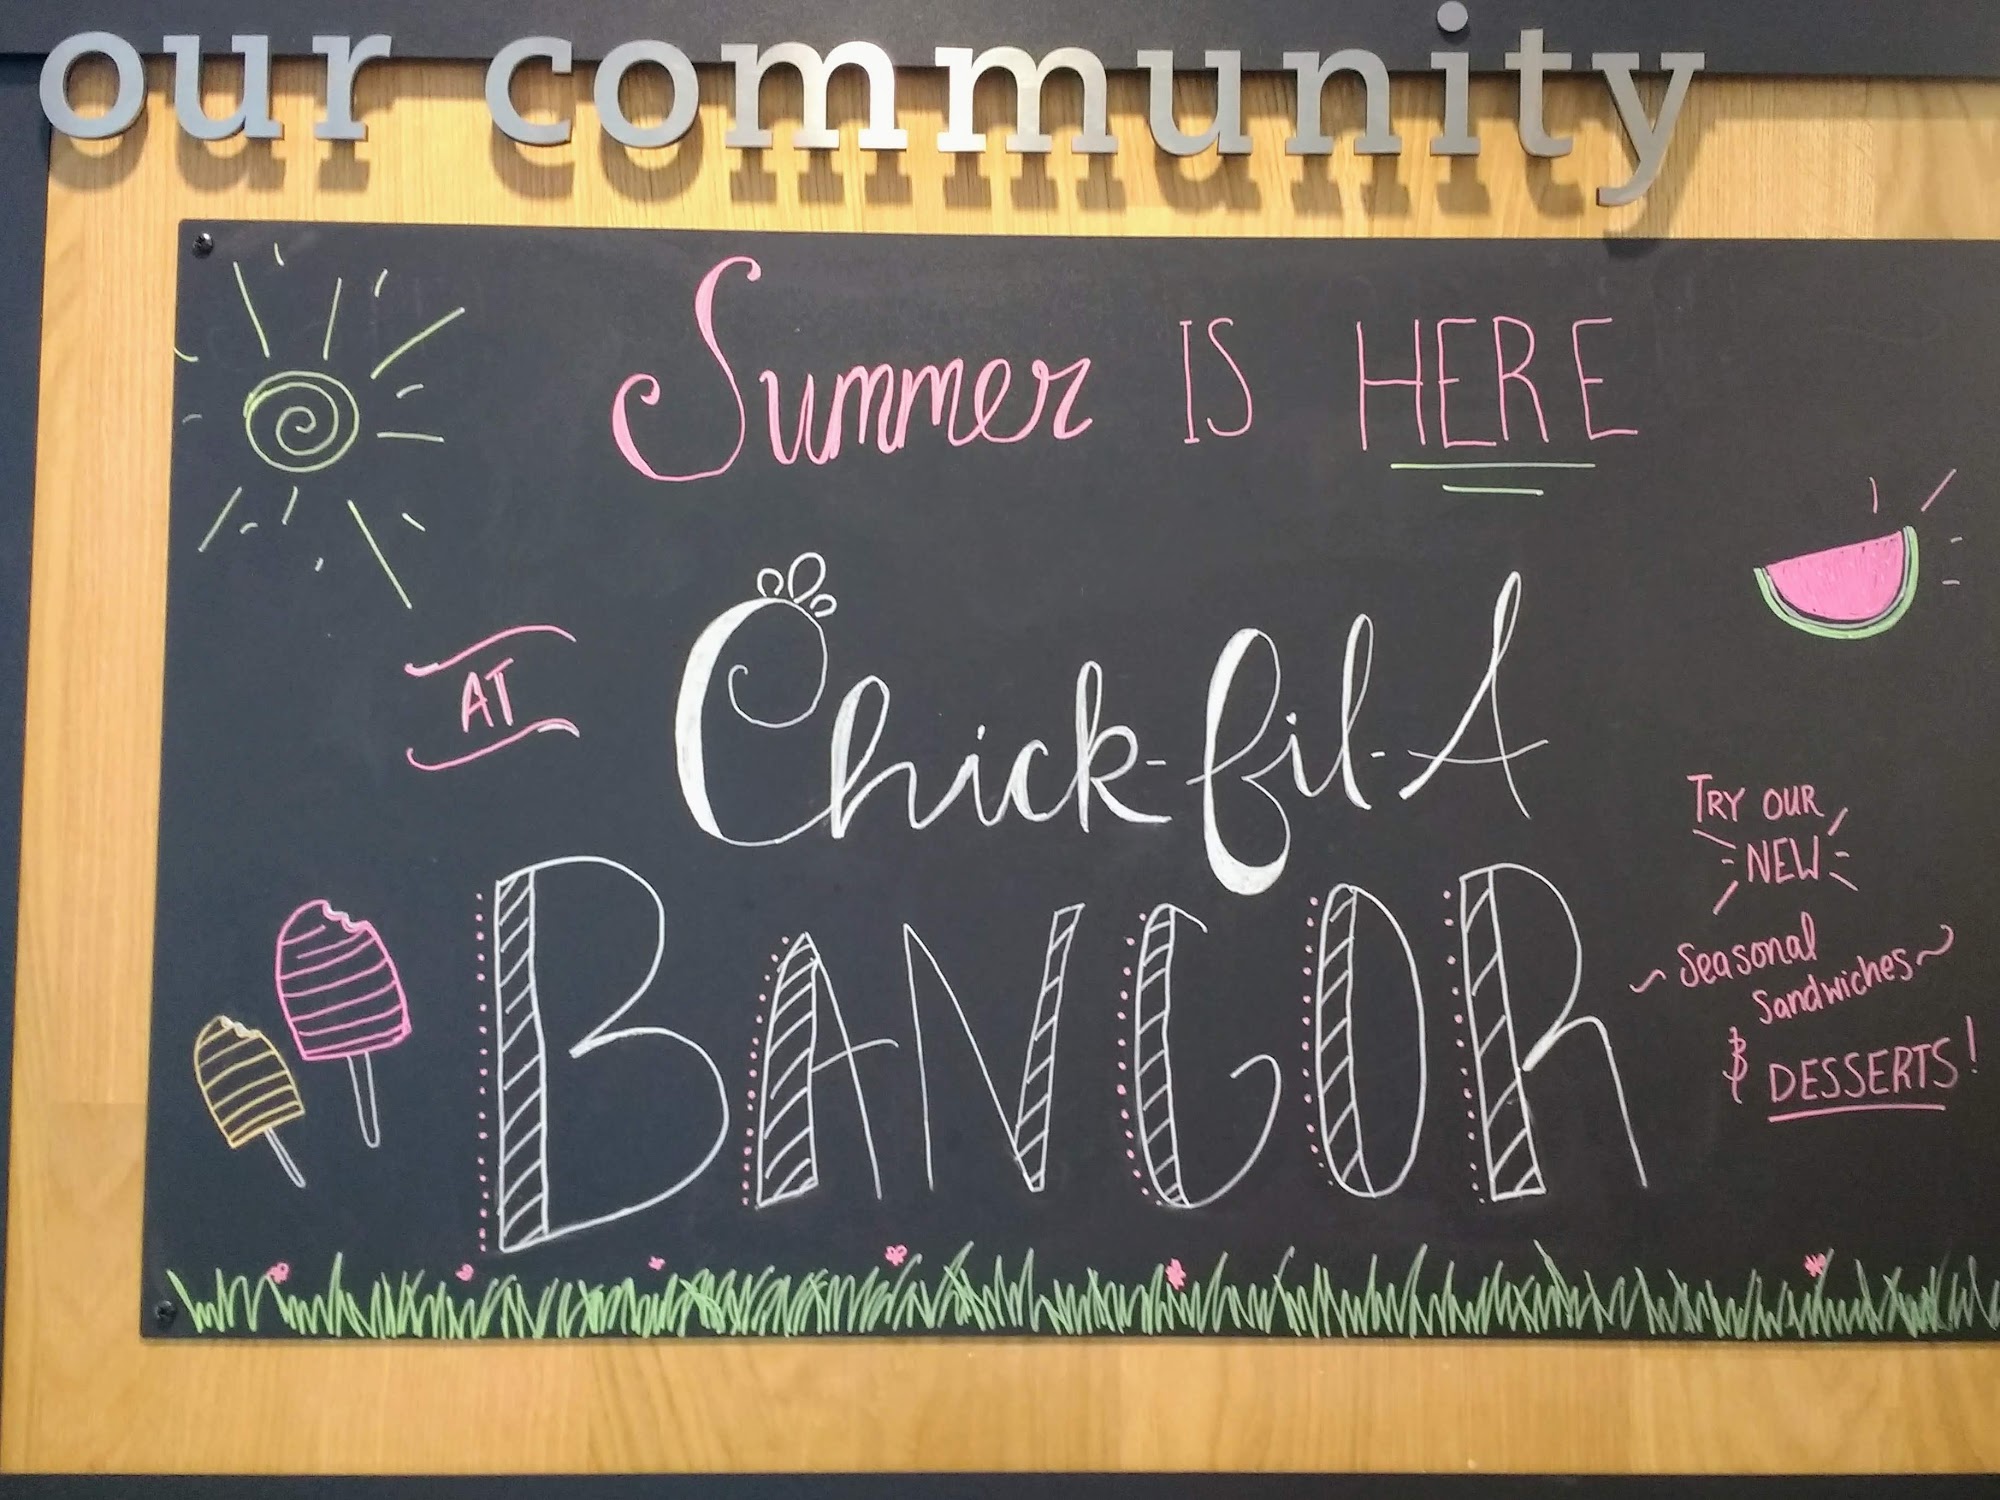 our community
Summer IS HERE
AT
Chick-fil-A
BANGOR
TRY OUR
NEW
Seasonal
Sandwiches
& DESSERTS!